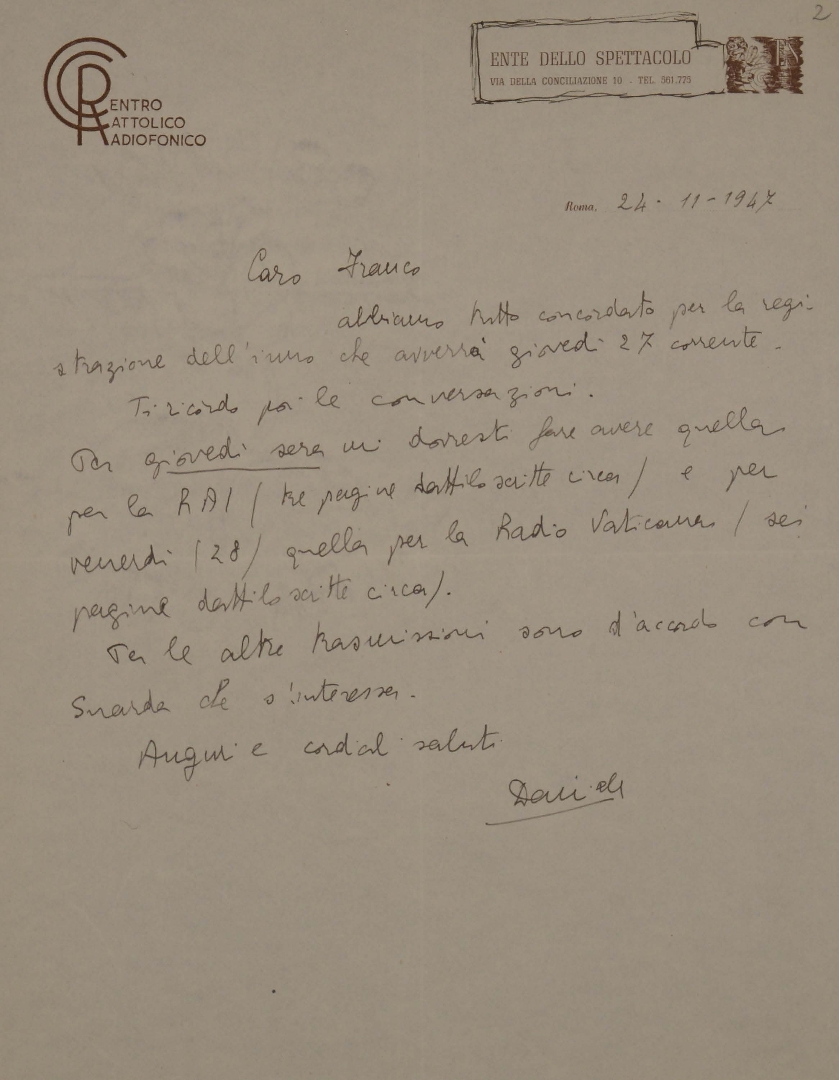 2
CENTRO
CATTOLICO
RADIOFONICO
ENTE DELLO SPETTACOLO
VIA DELLA CONCILIAZIONE 10 . TEL. 561.775
Roma, 24 - 11 - 1947
Caro Franco
abbiamo tutto concordato per la regi-
strazione dell'inno che avverrà giovedì 27 corrente.
Ti ricordo poi le conversazioni.
Per giovedì sera mi dovresti fare avere quella
per la RAI (tre pagine dattiloscritte circa) e per
venerdì (28) quella per la Radio Vaticana (sei
pagine dattiloscritte circa).
Per le altre trasmissioni sono d'accordo con
che s'interessa.
Auguri e cordiali saluti